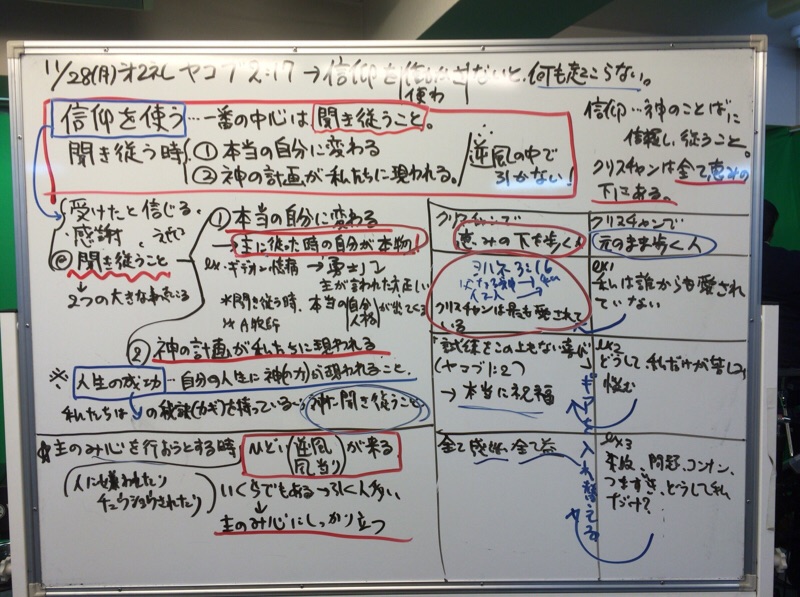 11/28(月)オ2礼 ヤコブ2:17 → 信仰を ないと、何も起こらない。
使わ
信仰を使う…一番の中心は聞き従うこと。
聞き従う時 ① 本当の自分に変わる
② 神の計画が私たちに現われる。
逆風の中で
引かない!
信仰…神のことばに
信頼し、従うこと。
クリスチャンは全て、恵みの
下にある。
・受けたと信じる、
・感謝、
@ 聞き従うこと
↓
2つの大きな
① 本当の自分に変わる
→主に従った時の自分が本物!
ex・ギデオン 臆病 → 勇士
主が言われた 正しい
*聞き従う時、本当の 自分 が出てくる
人格
*A牧師
② 神の計画が私たちに現われる
※ 人生の成功…自分の人生に神(の力)が現われること、
私たちは の秘訣(カギ)を持っている 神に聞き従うこと
☆主のみ心を行おうとする時 ひどい(逆風 風当り)が来る
(人に嫌われたり
チュウショウされたり)
いくらでもある→引く人多い
↓
主のみ心にしっかり立つ
クリスチャンで
恵みの下を歩く人
クリスチャンで
元のまま歩く人
ヨハネ3:16
クリスチャンは最も愛されて
いる
ex1
私は誰からも愛され
ていない
「試練をこの上もない喜び」
(ヤコブ1:2)
→ 本当に祝福
ex2
どうして私だけが苦しい
悩む
全て感謝、全て益
ex3
事故、問題、コンナン、
つまずき、どうして私
だけ?
ギアを入れ替える